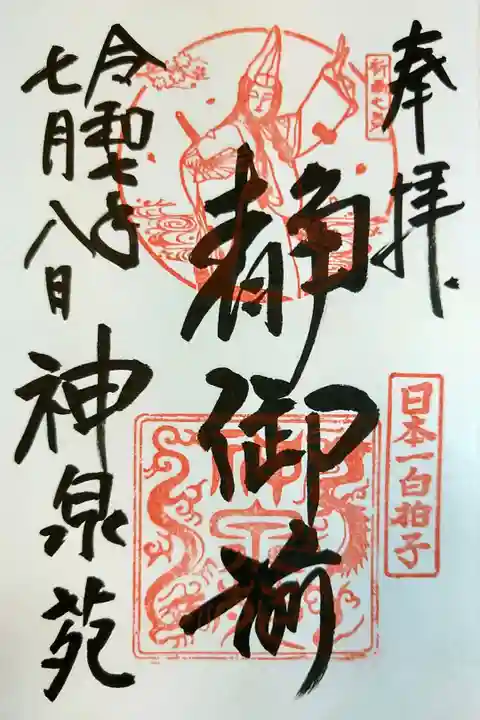 奉拝
日本一白拍子
静御前
令和七年
七月八日
神泉苑